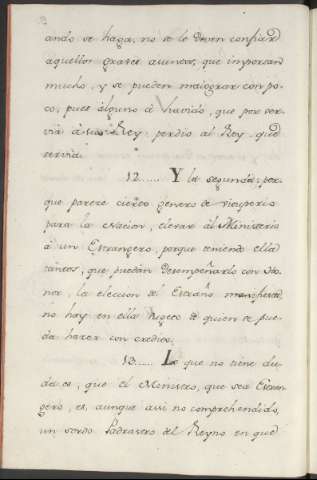 ando se haga, no se le deven confiar
aquellos graves asuntos, que importan
mucho, y se pueden malograr con po-
co, pues alguno à havido, que por ser-
vir à su Rey perdio al Rey que
servia.
12...... Y la segunda; por-
que parece cierto genero de vituperio
para la Nacion, elevar àl Ministerio
à un Estrangero, porque teniendo ella
tantos, que puedan desempeñarlo con Ho-
nor, la eleccion del Estraño
no hay en ella sugeto de quien se pue-
da hacer con credito.
13..... Lo que no tiene du-
da es, que el Ministro, que sea Estran-
gero, es, aunque assi no comprehendido,
un sordo Padrastro del Reyno en que